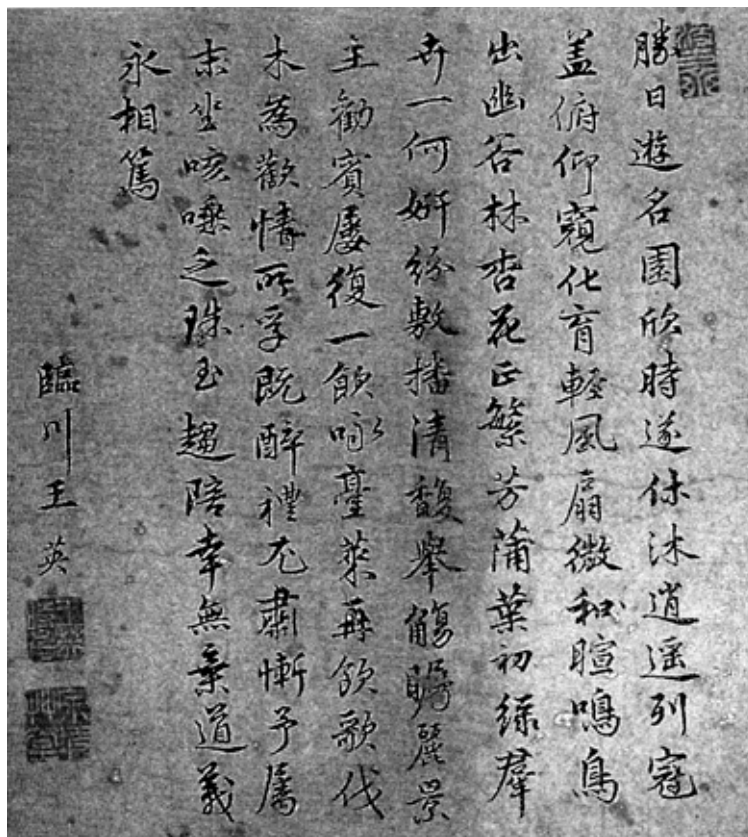 勝日遊名園欣時遂休沐逍遥列冠
盖俯仰窺化育輕風扇微和暄鳴鳥
出幽谷林杏花正繁芳蒲葉初緑羣
卉一何妍紛敷播清馥舉觴矚麗景
主勸賓屢復一飲咏臺萊再飲歌伐
木為歡情所孚既醉禮尤肅慚予属
末坐咳唾乏珠玉趨陪幸無棄道義
永相篤
臨川王英